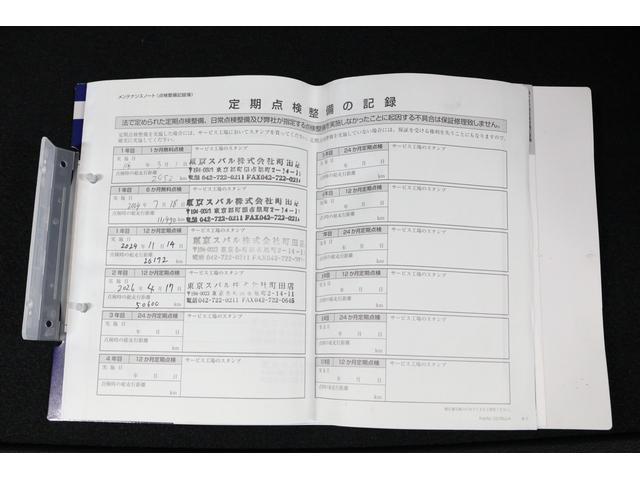 メンテナンスノート(点検整備記録簿)
定期点検整備の記録
法で定められた定期点検整備、日常点検整備及び弊社が指定する点検整備を実施しなかったことに起因する不具合は保証修理致しません。
定期点検整備を実施した場合には、サービス工場においてスタンプを貰ってください。
確実に実施してください。
1年目
サービス工場のスタンプ
実施日
年 3月 1日
点検時の総走行距離
km
東京スバル株式会社町田店
〒194-0023 東京都町田市旭町2-14-11
電話042-722-0211 FAX042-722-0645
1年目 6か月無償点検
サービス工場のスタンプ
実施日
2024年 7月 18日
点検時の総走行距離
11,490 km
東京スバル株式会社町田店
〒194-0023 東京都町田市旭町2-14-11
電話 042-722-0211 FAX042-722-0645
1年目 12か月定期点検
サービス工場のスタンプ
実施日
2024年 11月 14日
点検時の総走行距離
20192 km
東京スバル株式会社町田店
〒194-0023 東京都町田市旭町2-14-11
電話 042-722-0211 FAX 042-722-0645
2年目 12か月定期点検
サービス工場のスタンプ
実施日
2026年 4月 17日
点検時の総走行距離
50600 km
東京スバル株式会社町田店
〒194-0023 東京都町田市旭町2-14-11
電話042-722-0211 FAX 042-722-0645
3年目 24か月定期点検
サービス工場のスタンプ
実施日
年 月 日
点検時の総走行距離
km
4年目 12か月定期点検
サービス工場のスタンプ
実施日
年 月 日
点検時の総走行距離
km
24か月定期点検
サービス工場のスタンプ
年 月 日
km
12か月定期点検
サービス工場のスタンプ
年 月 日
km
24か月定期点検
サービス工場のスタンプ
年 月 日
km
12か月定期点検
サービス工場のスタンプ
年 月 日
km
24か月定期点検
サービス工場のスタンプ
年 月 日
km
12か月定期点検
サービス工場のスタンプ
年 月 日
km